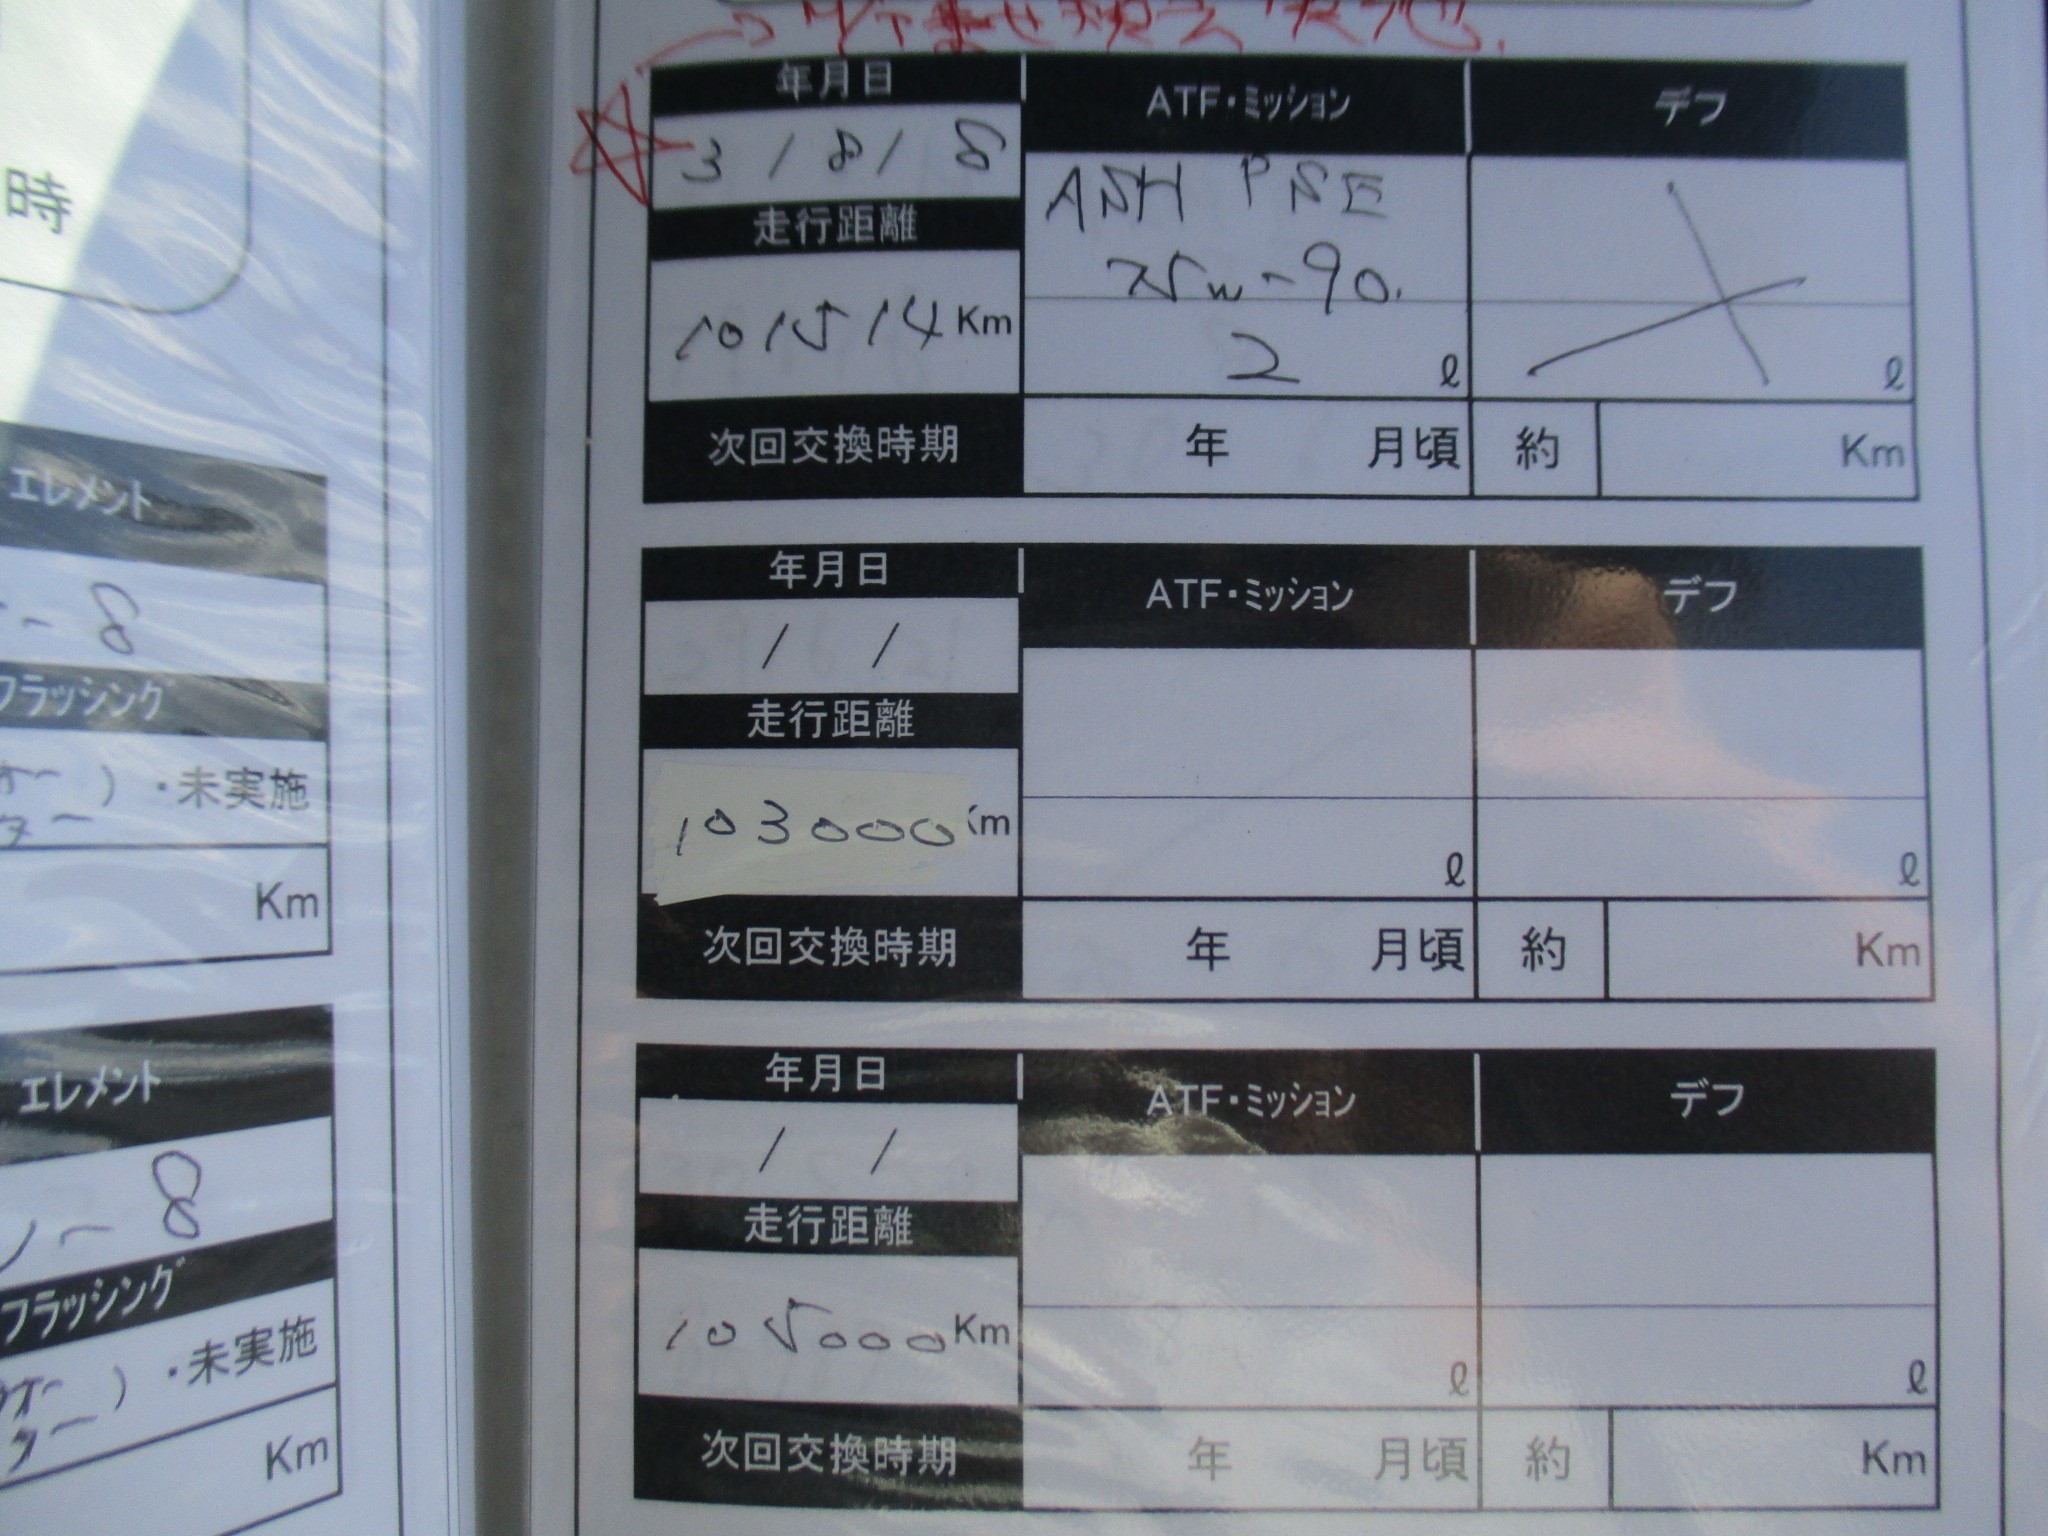 時
エレメント
- 8
フラッシング
)・未実施
Km
エレメント
- 8
フラッシング
)・未実施
Km
年月日 ATF・ミッション デフ
3 / 8 / 8
ASH PSE
走行距離
75W-90.
101514 Km
2 ℓ ℓ
次回交換時期 年 月頃 約 Km
年月日 ATF・ミッション デフ
/ /
走行距離
103000 Km
ℓ ℓ
次回交換時期 年 月頃 約 Km
年月日 ATF・ミッション デフ
/ /
走行距離
105000 Km
ℓ ℓ
次回交換時期 年 月頃 約 Km